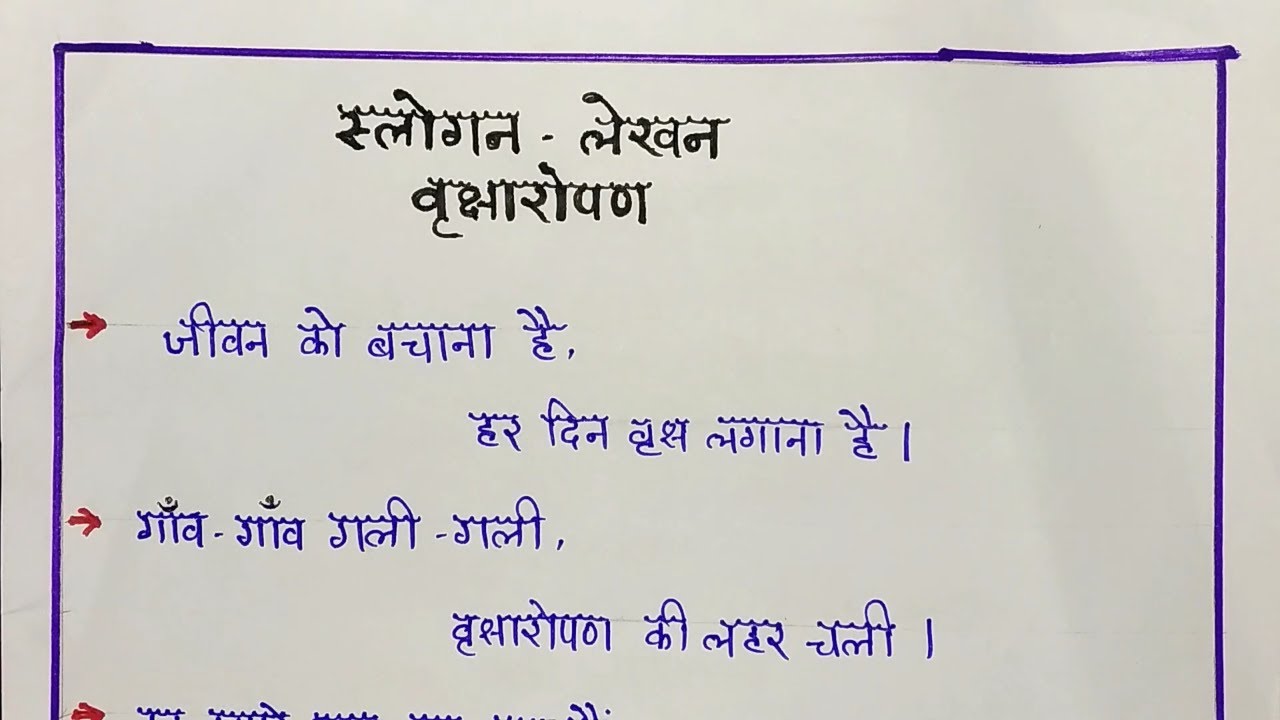 स्लोगन - लेखन
वृक्षारोपण
जीवन को बचाना है,
हर दिन वृक्ष लगाना है।
गाँव - गाँव गली - गली,
वृक्षारोपण की लहर चली।